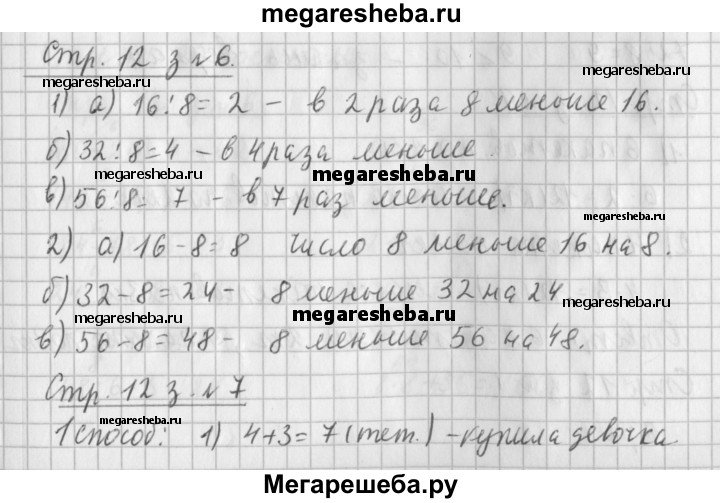 megaresheba.ru
Стр. 12 з №6.
megaresheba.ru
megaresheba.ru
1) а) 16:8=2 – в 2 раза 8 меньше 16.
б) 32:8=4 – в 4 раза меньше.
megaresheba.ru
megaresheba.ru
в) 56:8= 7 – в 7 раз меньше.
megaresheba.ru
2) а) 16-8=8 Число 8 меньше 16 на 8.
б) 32-8=24- 8 меньше 32 на 24
megaresheba.ru
megaresheba.ru
megaresheba.ru
в) 56-8=48- 8 меньше 56 на 48.
Стр. 12 з. №7
megaresheba.ru
1 способ: 1) 4+3=7 (тет.) -купила девочка
Мегарешеба.ру